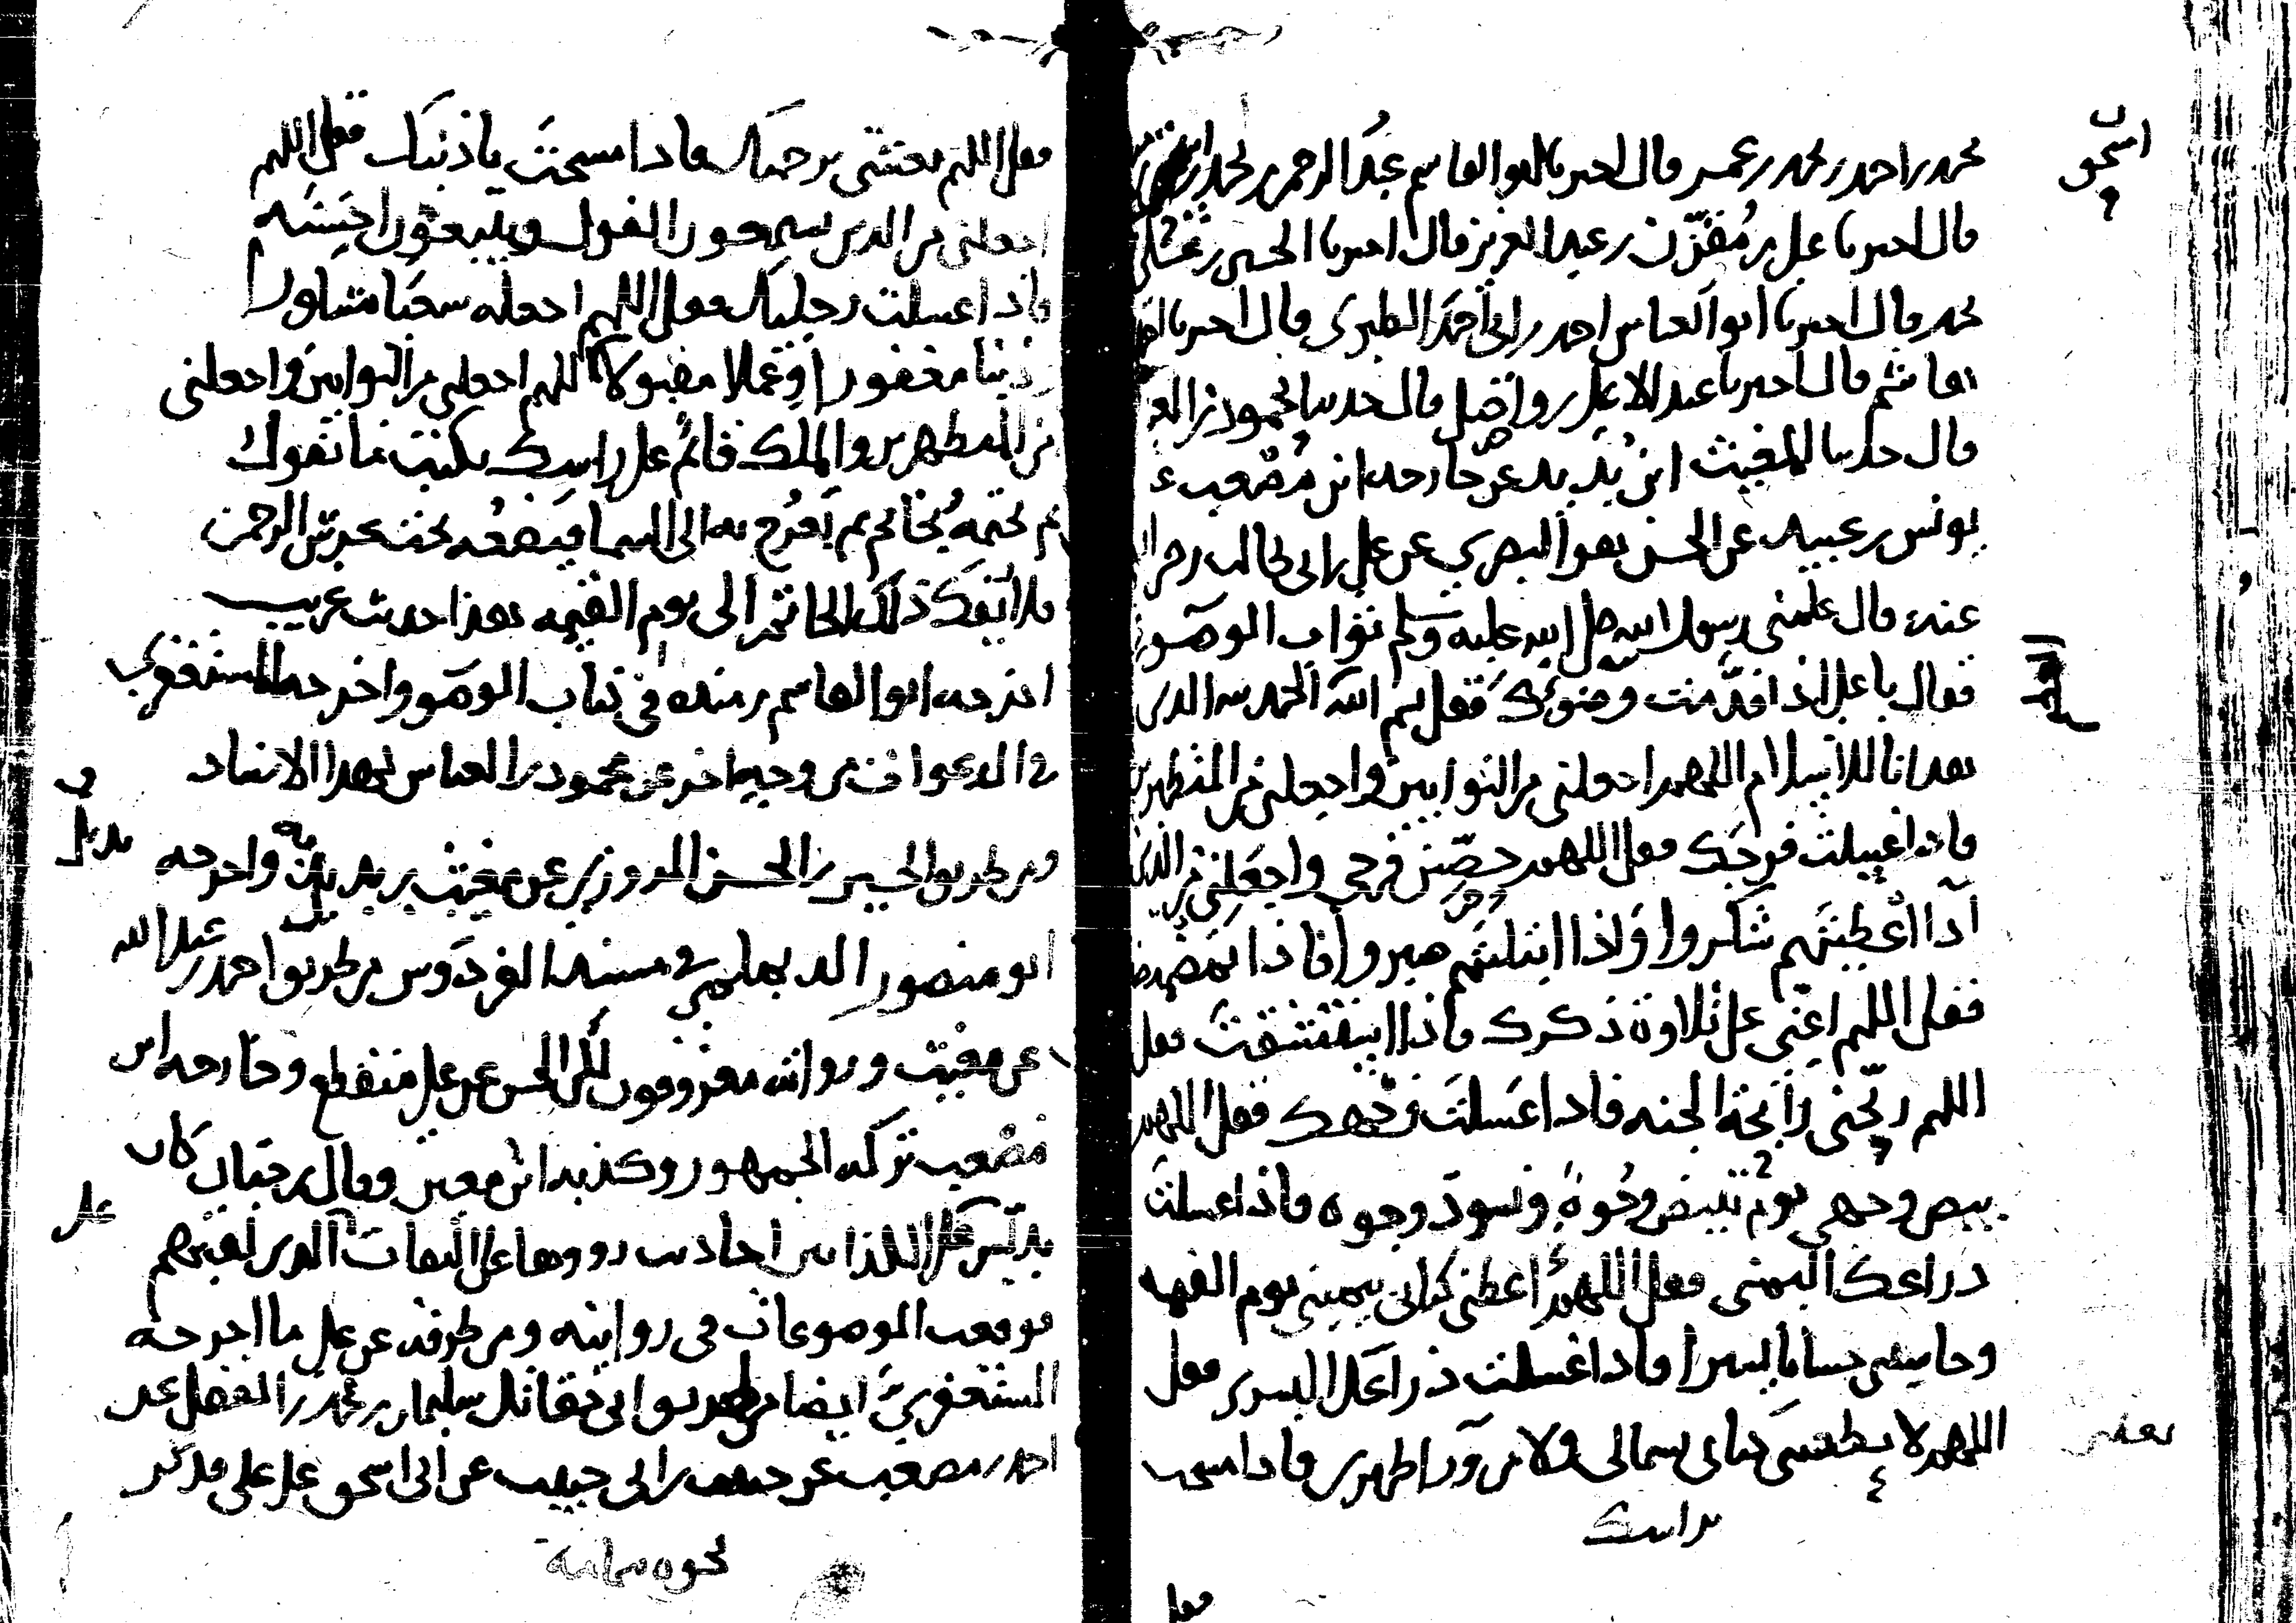 محمد بن احمد بن محمد بن عمر قال اخبرنا ابو القاسم عبد الرحمن بن محمد بن
اسحق
قال اخبرنا علي بن مقرن بن عبد العزيز قال اخبرنا الحسن بن علي
محمد قال اخبرنا ابو العباس احمد بن ابي احمد الطبري قال اخبرنا
هاشم قال اخبرنا عبد الاعلى بن واصل قال حدثنا محمود بن
قال حدثنا المغيث ابن بديل عن خارجه ابن مصعب ع
يونس بن عبيد عن الحسن هو البصري عن علي بن ابي طالب رضى
عنه قال علمنى رسول الله صلى الله عليه وسلم ثواب الوضو
فقال يا على اذا قدمت وضوءك فقل بسم الله الحمد لله الذي
هدانا للاسلام اللهم اجعلنى من التوابين واجعلنى من المتطهرين
فاذا غسلت فرجك فقل اللهم حصن فرجي واجعلني من الذين
اذا اعطيتهم شكروا واذا ابتليتهم صبروا فاذا تمضمضت
فقل اللهم اعني على تلاوة ذكرك فاذا استنشقت فقل
اللهم ريحني رائحة الجنه فاذا غسلت وجهك فقل اللهم
بيض وجهي يوم تبيض وجوه وتسود وجوه فاذا غسلت
ذراعك اليمنى فقل اللهم اعطنى كتابي بيميني يوم القيمه
وحاسبني حسابا يسيرا فاذا غسلت ذراعك اليسرى فقل
اللهم لا تعطني كتابي بشمالي ولا من ورا ظهري فاذا مسحت
براسك
فقل اللهم تغشني برحمتك فاذا مسحت باذنيك فقل اللهم
اجعلني من الذين يستمعون القول ويتبعون احسنه
فاذا غسلت رجليك فقل اللهم اجعله سعيا مشكورا
وذنبا مغفورا وعملا مقبولا اللهم اجعلني من التوابين واجعلني
من المتطهرين والملك قائم على راسك يكتب ما تقول
ثم تختمه بخاتم ثم يعرج به الى السما فيضعه تحت عرش الرحمن
فلا يفك ذلك الخاتم الى يوم القيمه هذا حديث غريب
اخرجه ابو القاسم بن منده في كتاب الوضو واخرجه المستغفري
في الدعوات من وجه اخر عن محمود بن العباس بهذا الاسناد
ومن طريق الحسين بن الحسن المروزي عن مغيث بن بديل واخرجه
ابو منصور الديلمي في مسند الفردوس من طريق احمد بن عبد الله
عن مغيث ورواته معروفون لكن الحسن عن علي منقطع وخارجه ابن
مصعب تركه الجمهور وكذبه ابن معين وقال بن حبان كان
يدلس عن الكذابين احاديث رووها على الثقات الذين لقيهم
فوقعت الموضوعات في روايته ومن طرقه عن علي ما اخرجه
المستغفري ايضا من طريق ابي مقاتل سليمان بن محمد بن الفضل عن
احمد بن مصعب عن حبيب بن ابي حبيب عن ابي اسحق عن علي فذكر
نحوه بتمامه